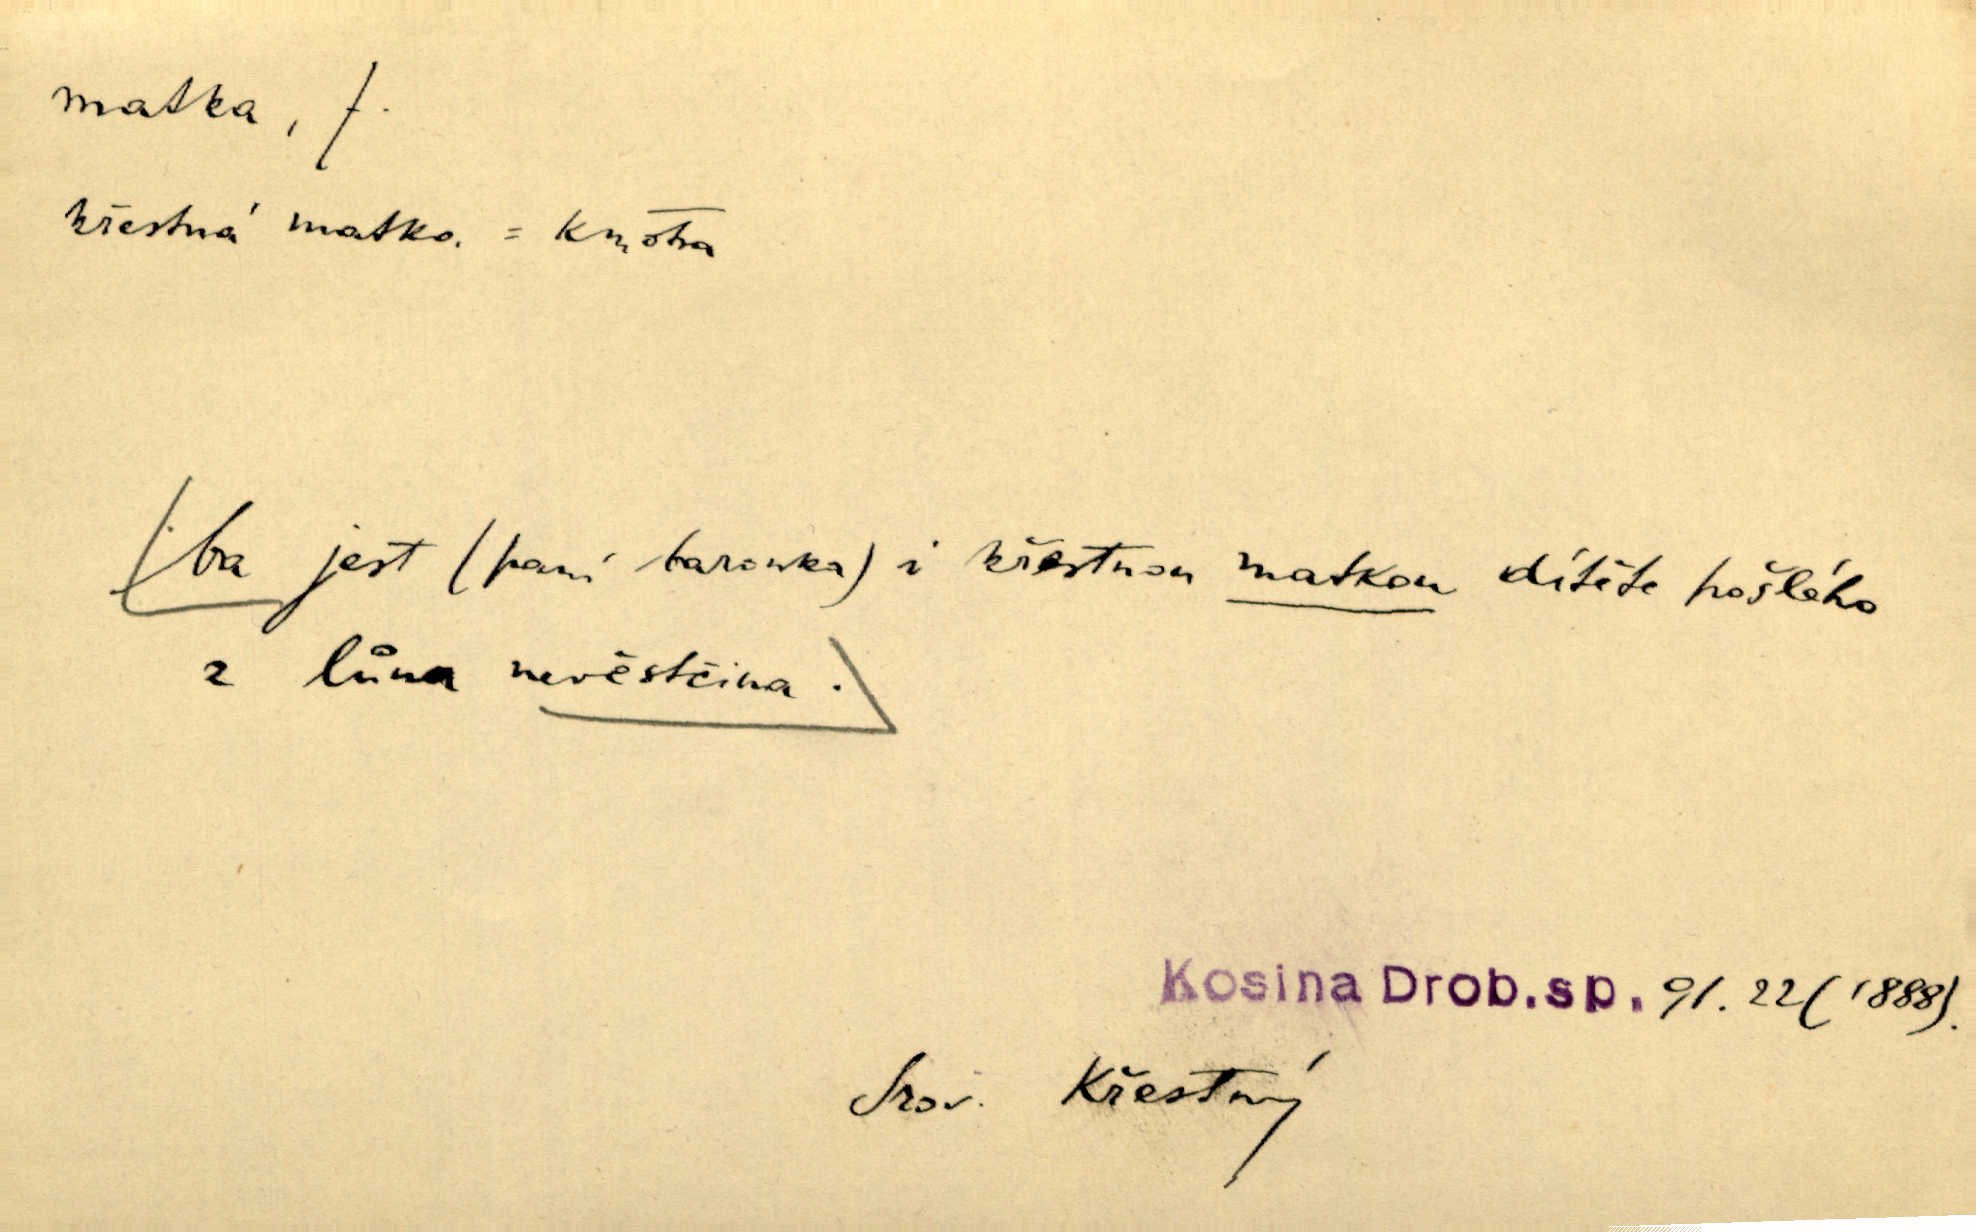 matka, f.
křestná matka = kmotra
ba jest (paní baronka) i křestnou matkou dítěte pošlého
z lůna nevěstčina.
Kosina Drob.sp. 91. 22 (1888).
Srov. Křestný